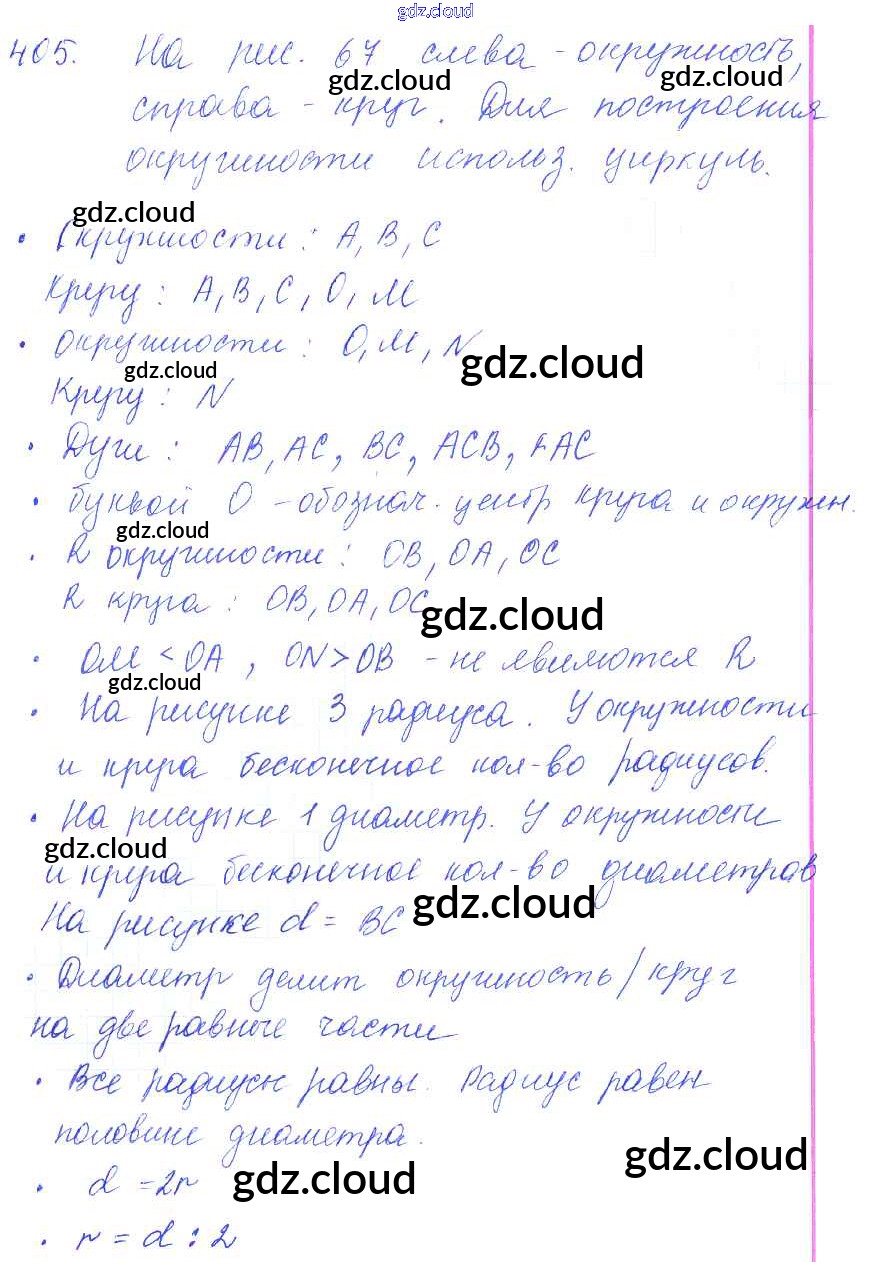 gdz.cloud
405. На рис. 67 слева - окружность,
gdz.cloud gdz.cloud
справа - круг. Для построения
окружности использ. циркуль.
gdz.cloud
· Окружности : A, B, C
Кругу : A, B, C, O, M
· окружности : O, M, N
gdz.cloud gdz.cloud
Кругу : N
· Дуги : AB, AC, BC, ACB, BAC
· буквой O - обознач. центр круга и окружн.
gdz.cloud
· R окружности : OB, OA, OC
R круга : OB, OA, OC
gdz.cloud
· OM < OA , ON > OB - не являются R
gdz.cloud
· На рисунке 3 радиуса. У окружности
и круга бесконечное кол-во радиусов.
· На рисунке 1 диаметр. У окружности
gdz.cloud
и круга бесконечное кол-во диаметров
gdz.cloud
На рисунке d = BC
· Диаметр делит окружность/круг
на две равные части
· Все радиусы равны. Радиус равен
половине диаметра.
gdz.cloud
· d = 2r
gdz.cloud
· r = d : 2